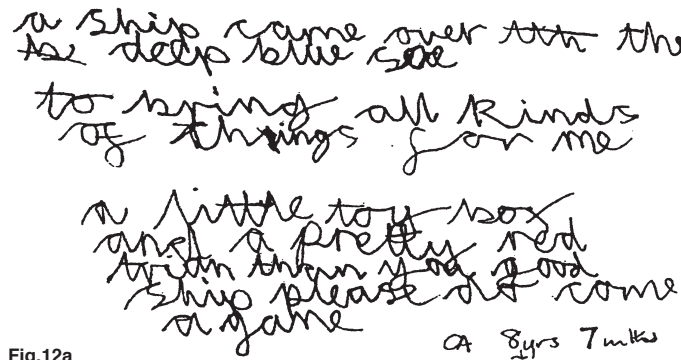 a ship came over the
deep blue sea
to bring all kinds
of things for me
a little toy box
and a pretty red
train than you good
ship please do come
a gane
CA 8yrs 7mths
Fig.12a